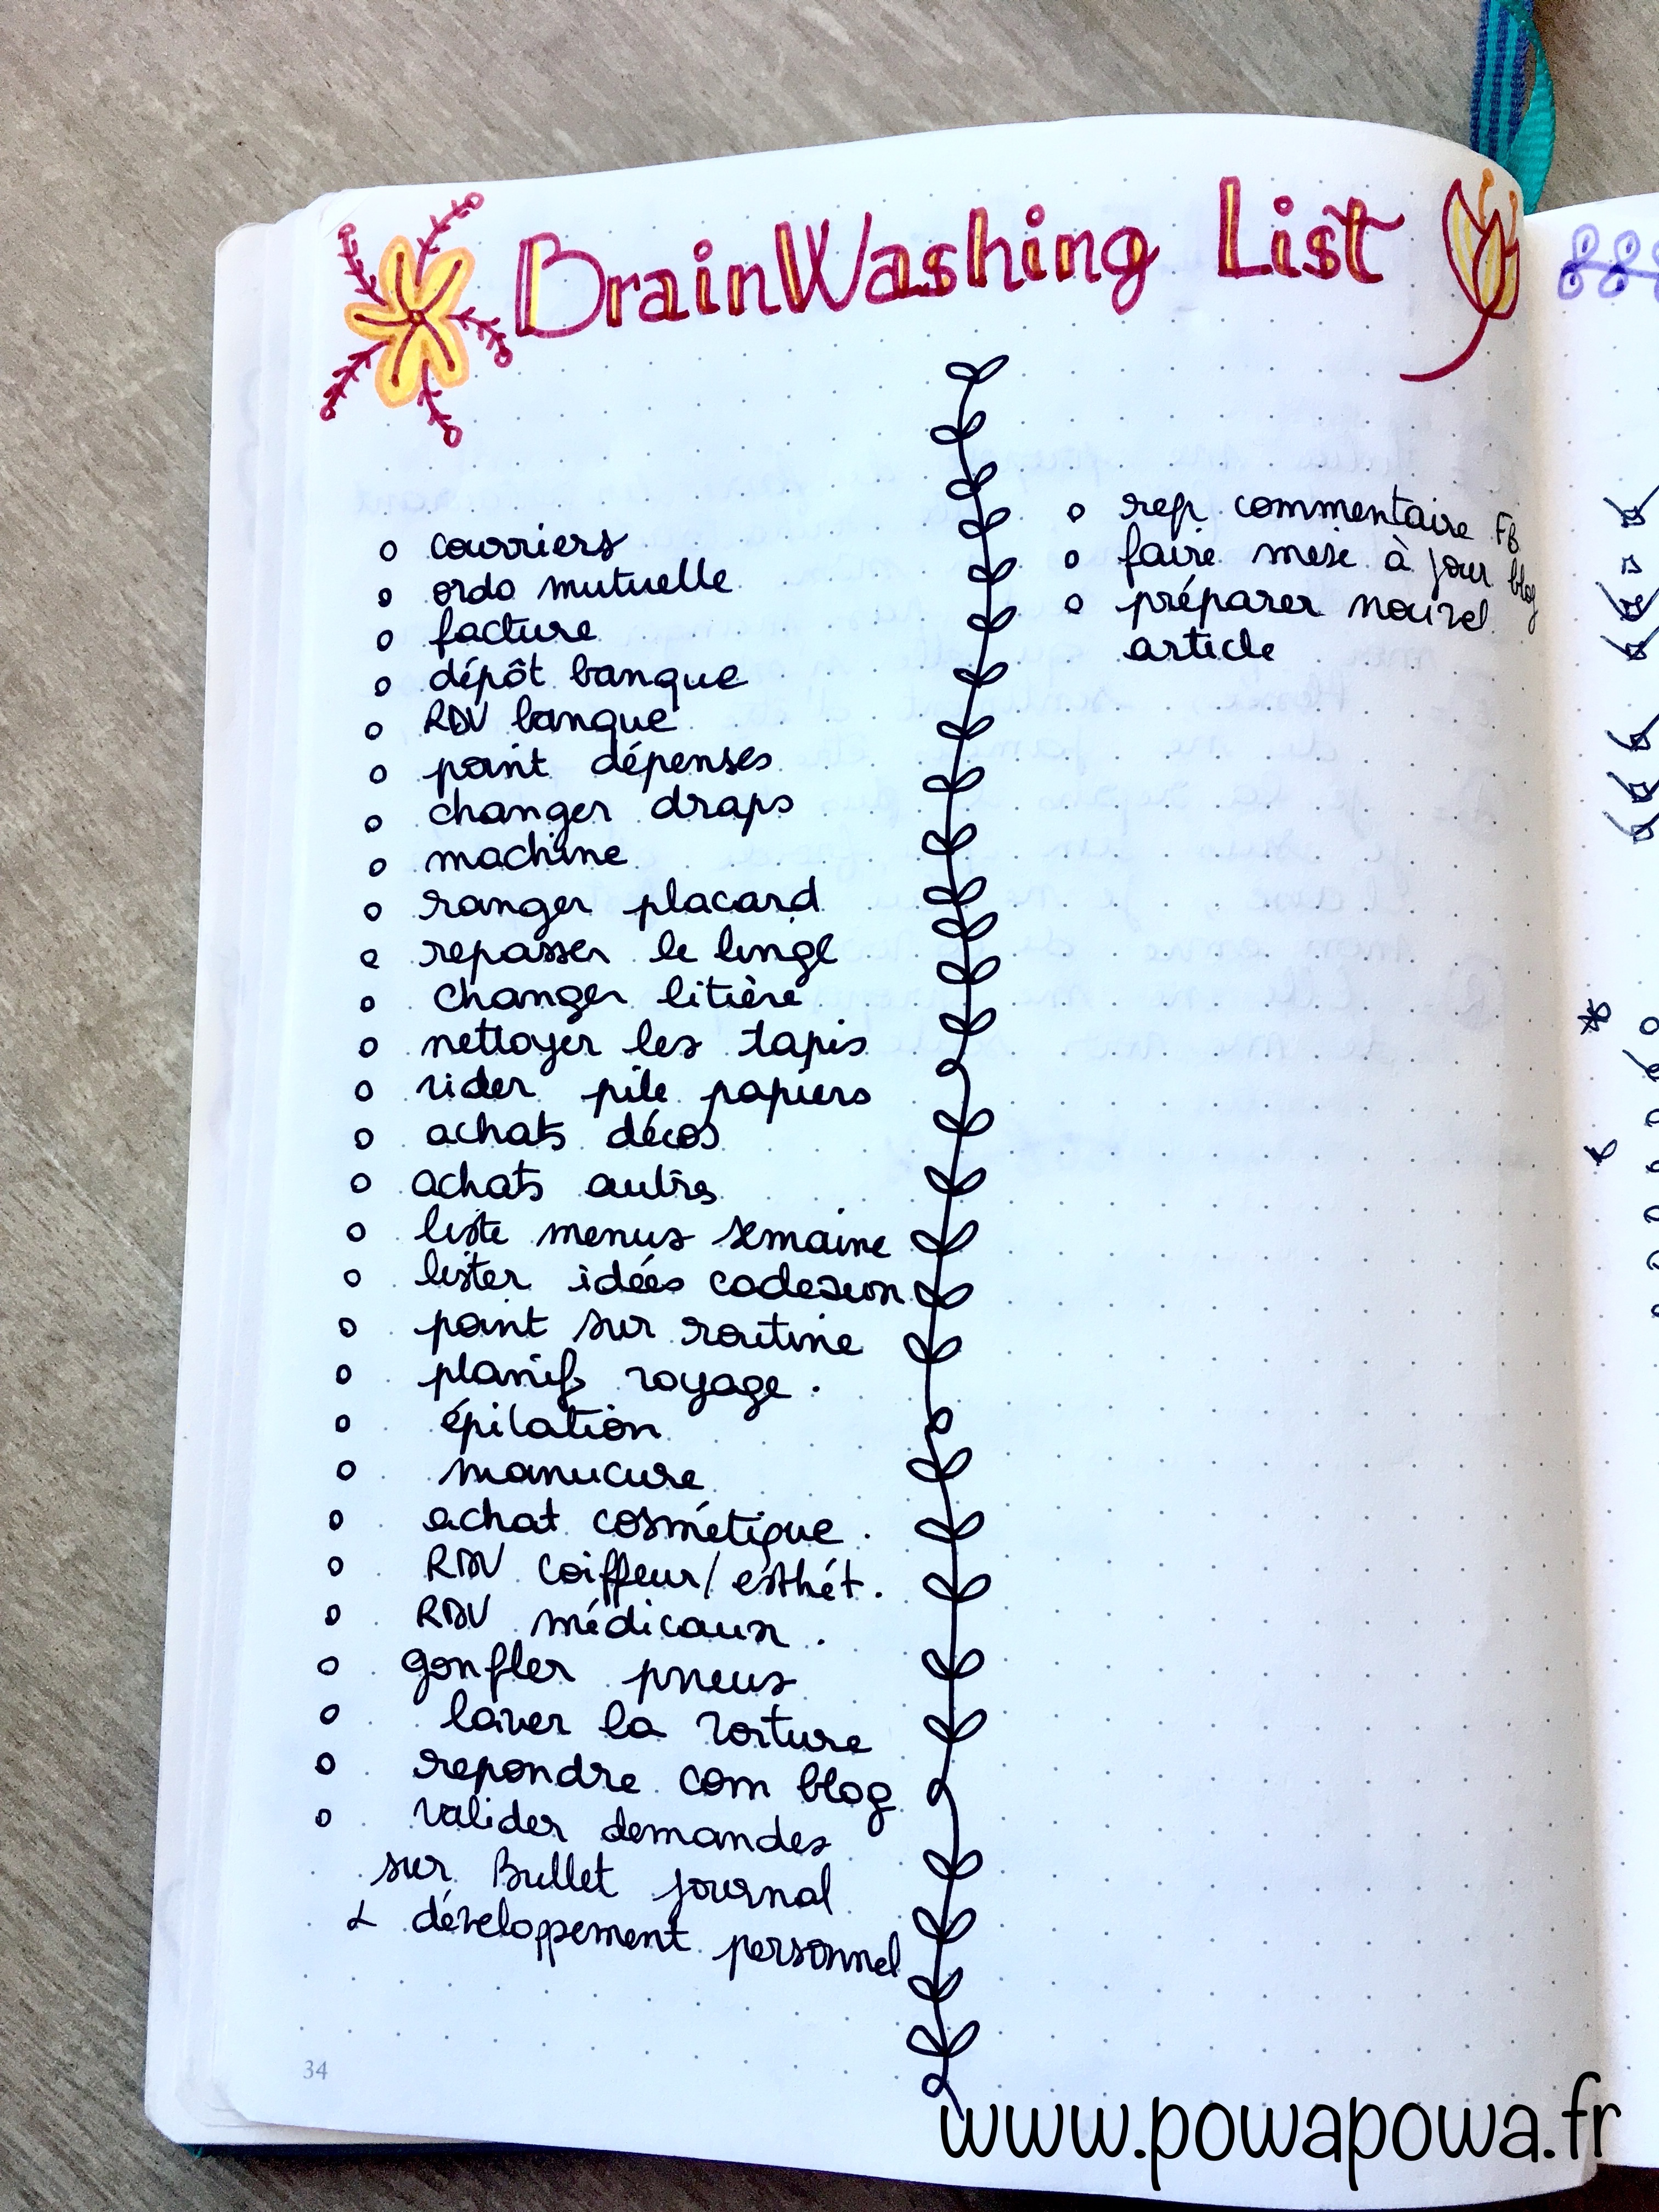 BrainWashing List
o courriers
o ordo mutuelle
o facture
o dépôt banque
o RDV banque
o point dépenses
o changer draps
o machine
o ranger placard
o repasser le linge
o changer litière
o nettoyer les tapis
o vider pile papiers
o achats décos
o achats autres
o liste menus semaine
o lister idées cadeaux
o point sur routine
o planif voyage.
o épilation
o manucure
o achat cosmétique.
o RDV coiffeur/esthét.
o RDV médicaux.
o gonfler pneus
o laver la voiture
o repondre com blog
o valider demandes
sur Bullet journal
& développement personnel
o rep commentaire FB
o faire mise à jour blog
o préparer nouvel
article
34
www.powapowa.fr